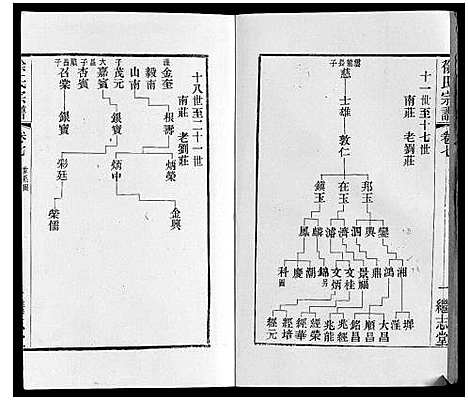 徐氏宗譜
卷七
十一世至十七世
南莊 老劉莊
慈
士雄
敦仁
邦玉
在玉
鎮玉
鸞 興 泗 濟 濾 麟 鳳
湘 鴻 鼎 景福 文桂 文炳 錦 湖 慶 科
墀 滢 大昌 順昌 銘昌 兆經 兆能 經榮 經華 經培 經元
繼志堂
十八世至二十一世
南莊 老劉莊
金奎
毅南
山南
根壽
炳榮
金興
茂元
子
嘉賓
大
銀寶
炳中
杏賓
長子
召棠
次子
銀寶
彩廷
榮儒
卷七